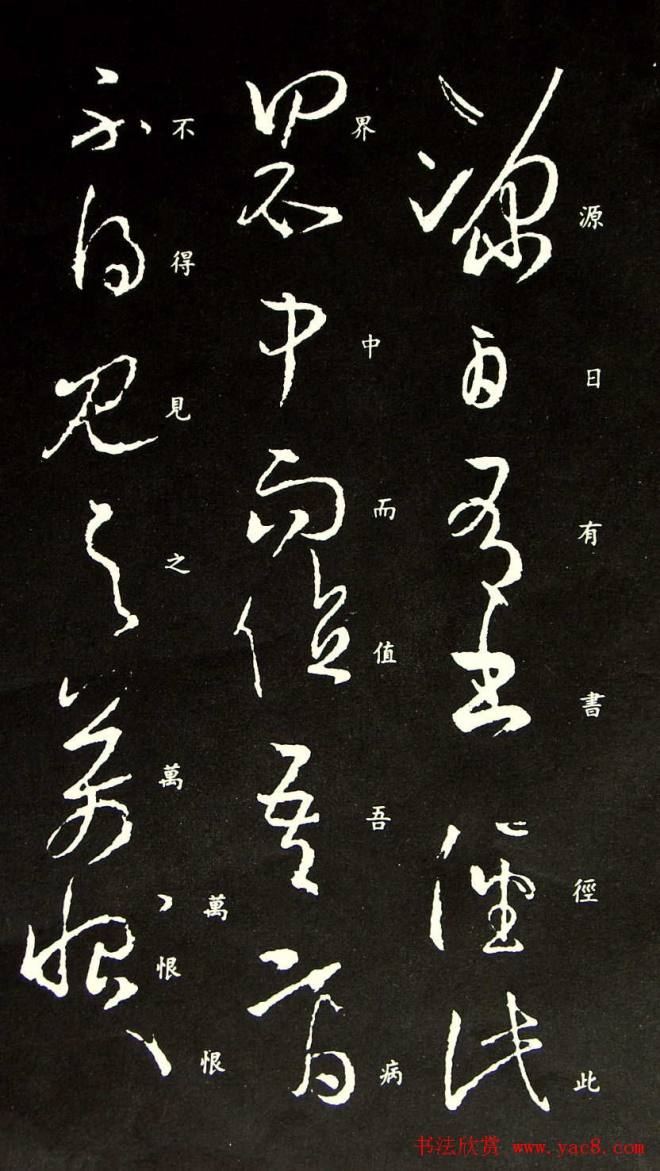 源日有書徑此
界中而值吾病
不得見之萬萬恨恨
书法欣赏 www.yac8.com